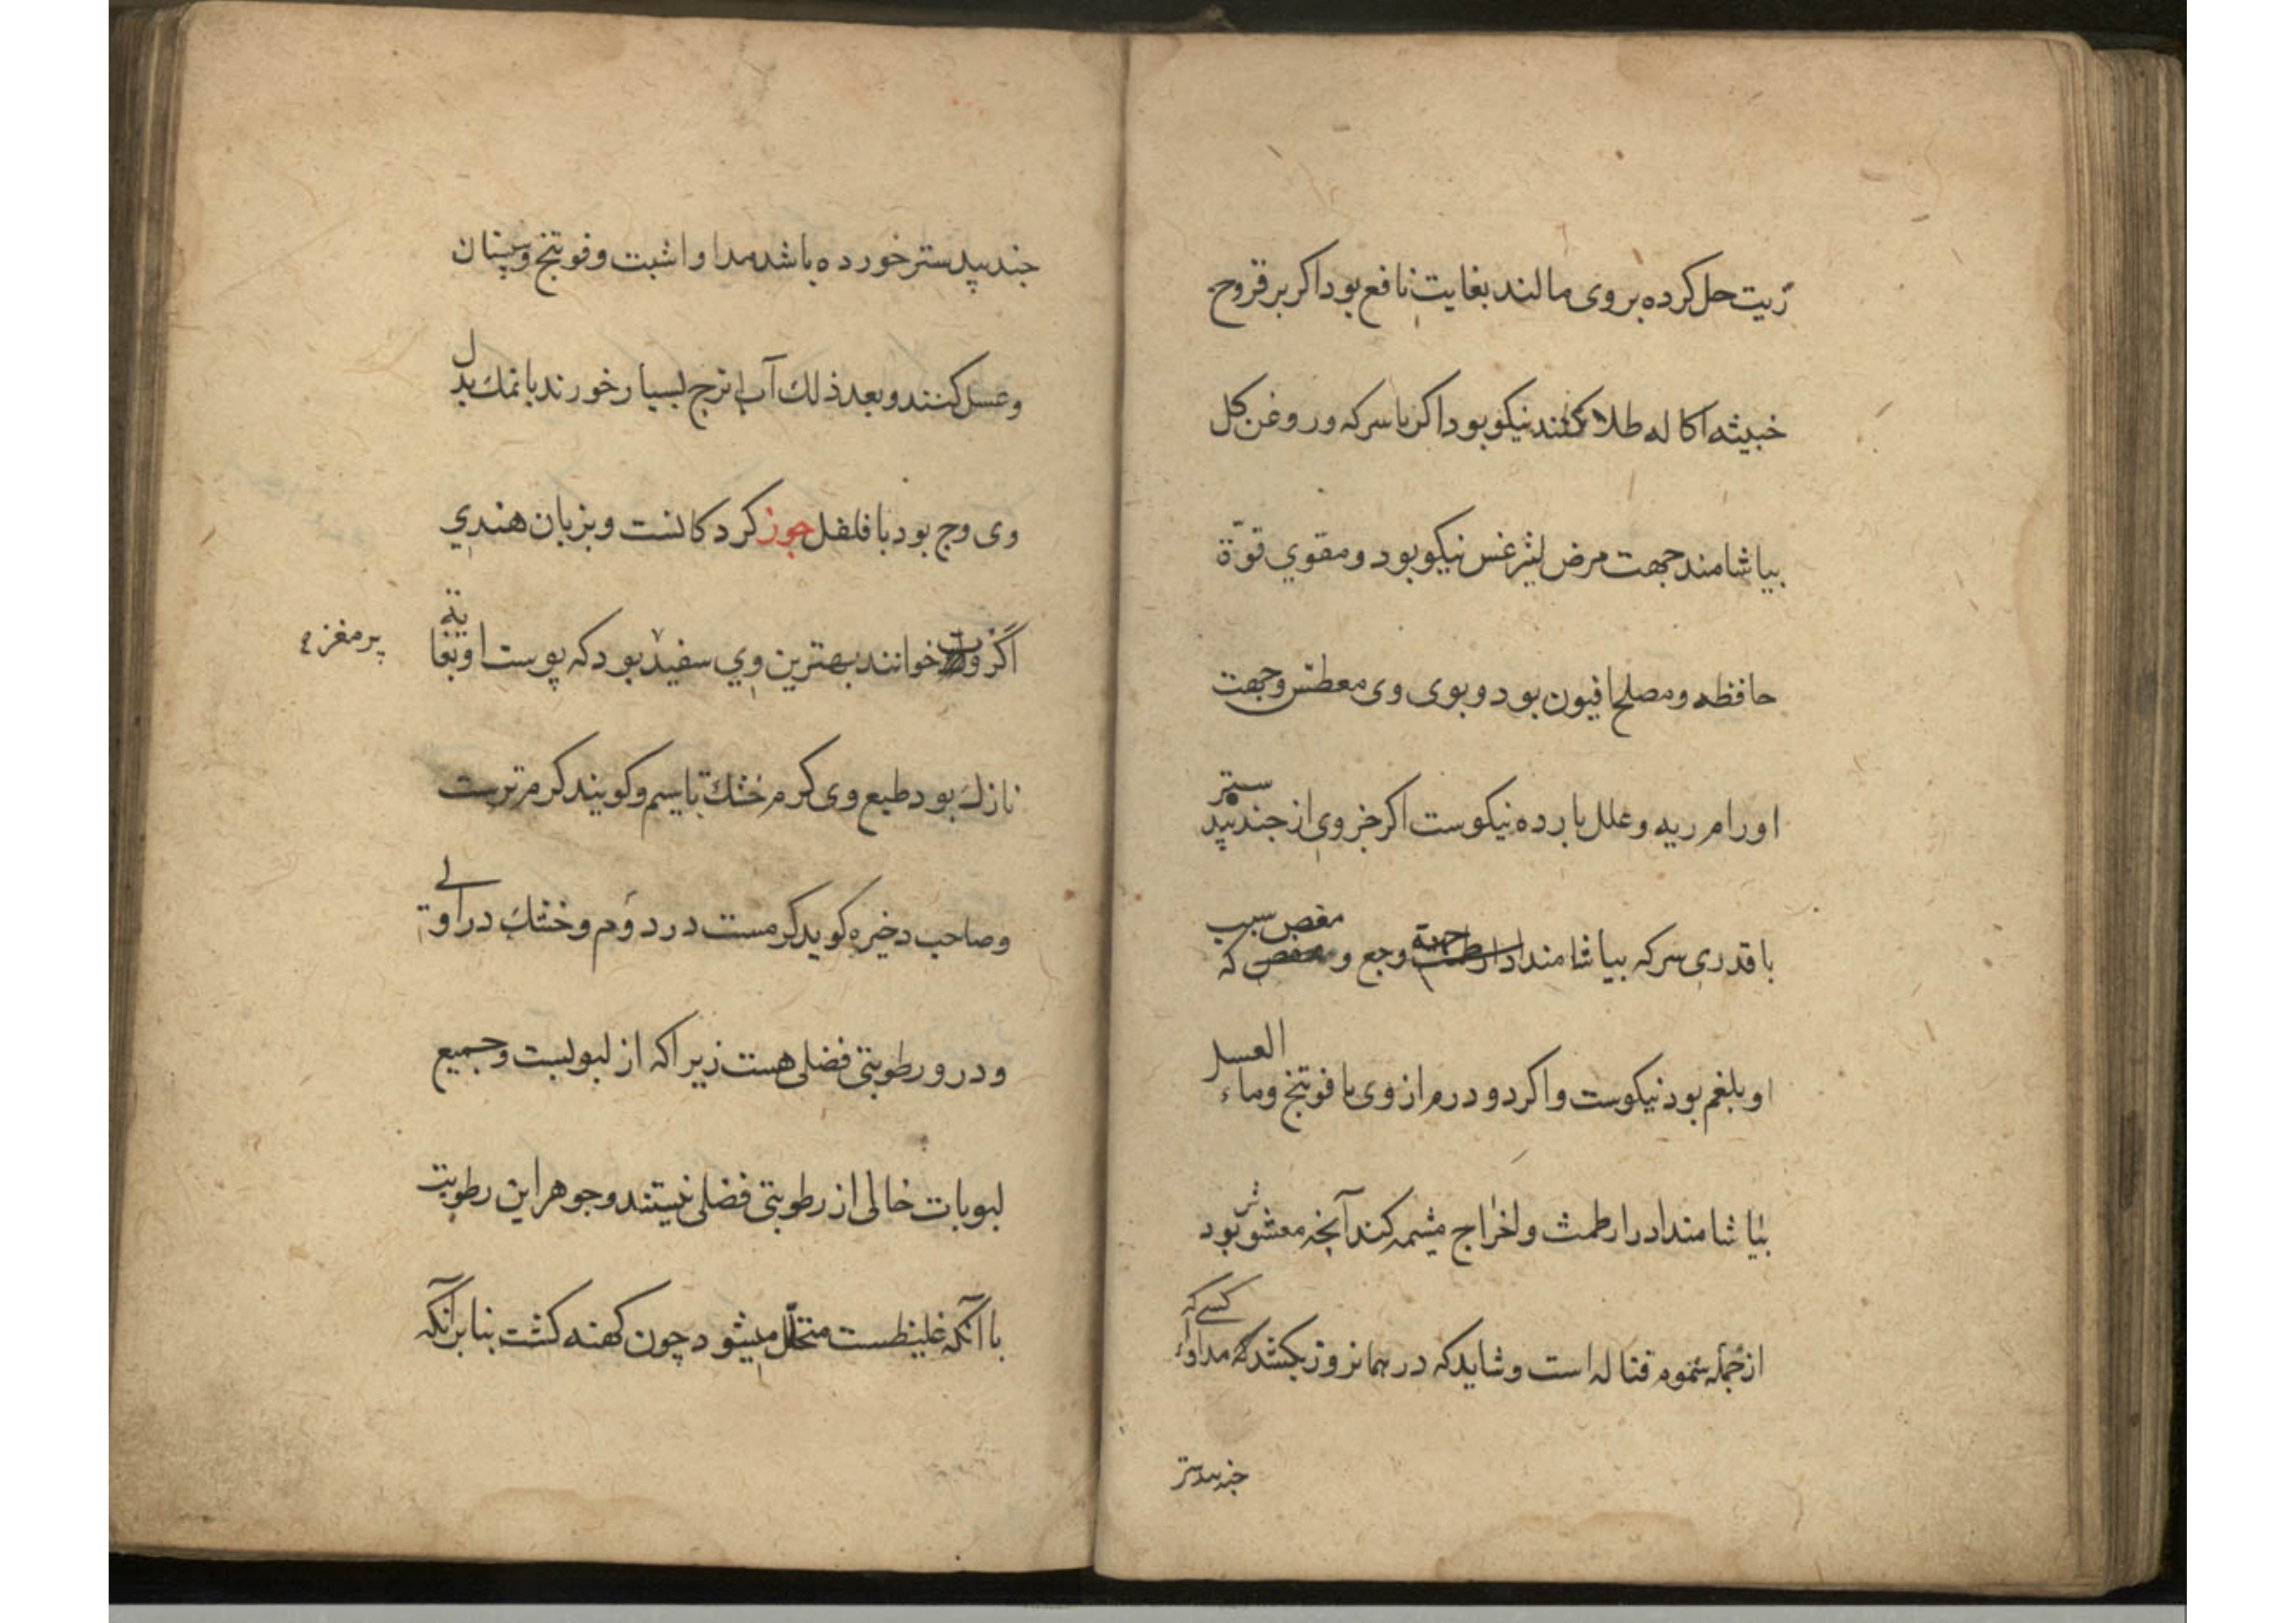 زیت حل کرده بر وی مالند بغایت نافع بود اکر بر قروح
خبیثه اکاله طلا کنند نیکو بود اکر با سرکه و روغن کل
بیاشامند جهت مرض لیثرغس نیکو بود و مقوي قوّة
حافظه و مصلح افیون بود و بوی وی معطس و جهت
اورام ریه و علل بارده نیکوست اکر جزوی از جندبیدستر
با قدری سرکه بیاشامند جهة وجع و مغص که سبب
او بلغم بود نیکوست و اکر دو درم از وی با فوتنج و ماء العسل
بیاشامند ادرار طمث و اخراج مشیمه کند آنچه مغشوش بود
از جمله سموم قتاله است و شاید که در همانروز بکشد مداواء کسے که
جندبیدستر
جندبیدستر خورده باشد مداوا شبت و فوتنج و سپستان
و عسل کنند و بعد ذلك آب اترج بسیار خورند با نمك بدل
وی وج بود با فلفل جوز کردکانست و بزبان هندي
اکروت خوانند بهترین وي سفید بود که پوست او بغایة
پر مغز و
نازك بود طبع وی کرم خشك تا سیم و کویند کرم ترست
و صاحب ذخیره کوید کرمست در دوم و خشك در اول و
و درو رطوبتی فضلی هست زیرا که از لبوبست و جمیع
لبوبات خالی از رطوبتی فضلی نیستند و جوهر این رطوبت
با آنکه غلیظست متحلّل میشود چون کهنه کشت بنابر آنکه